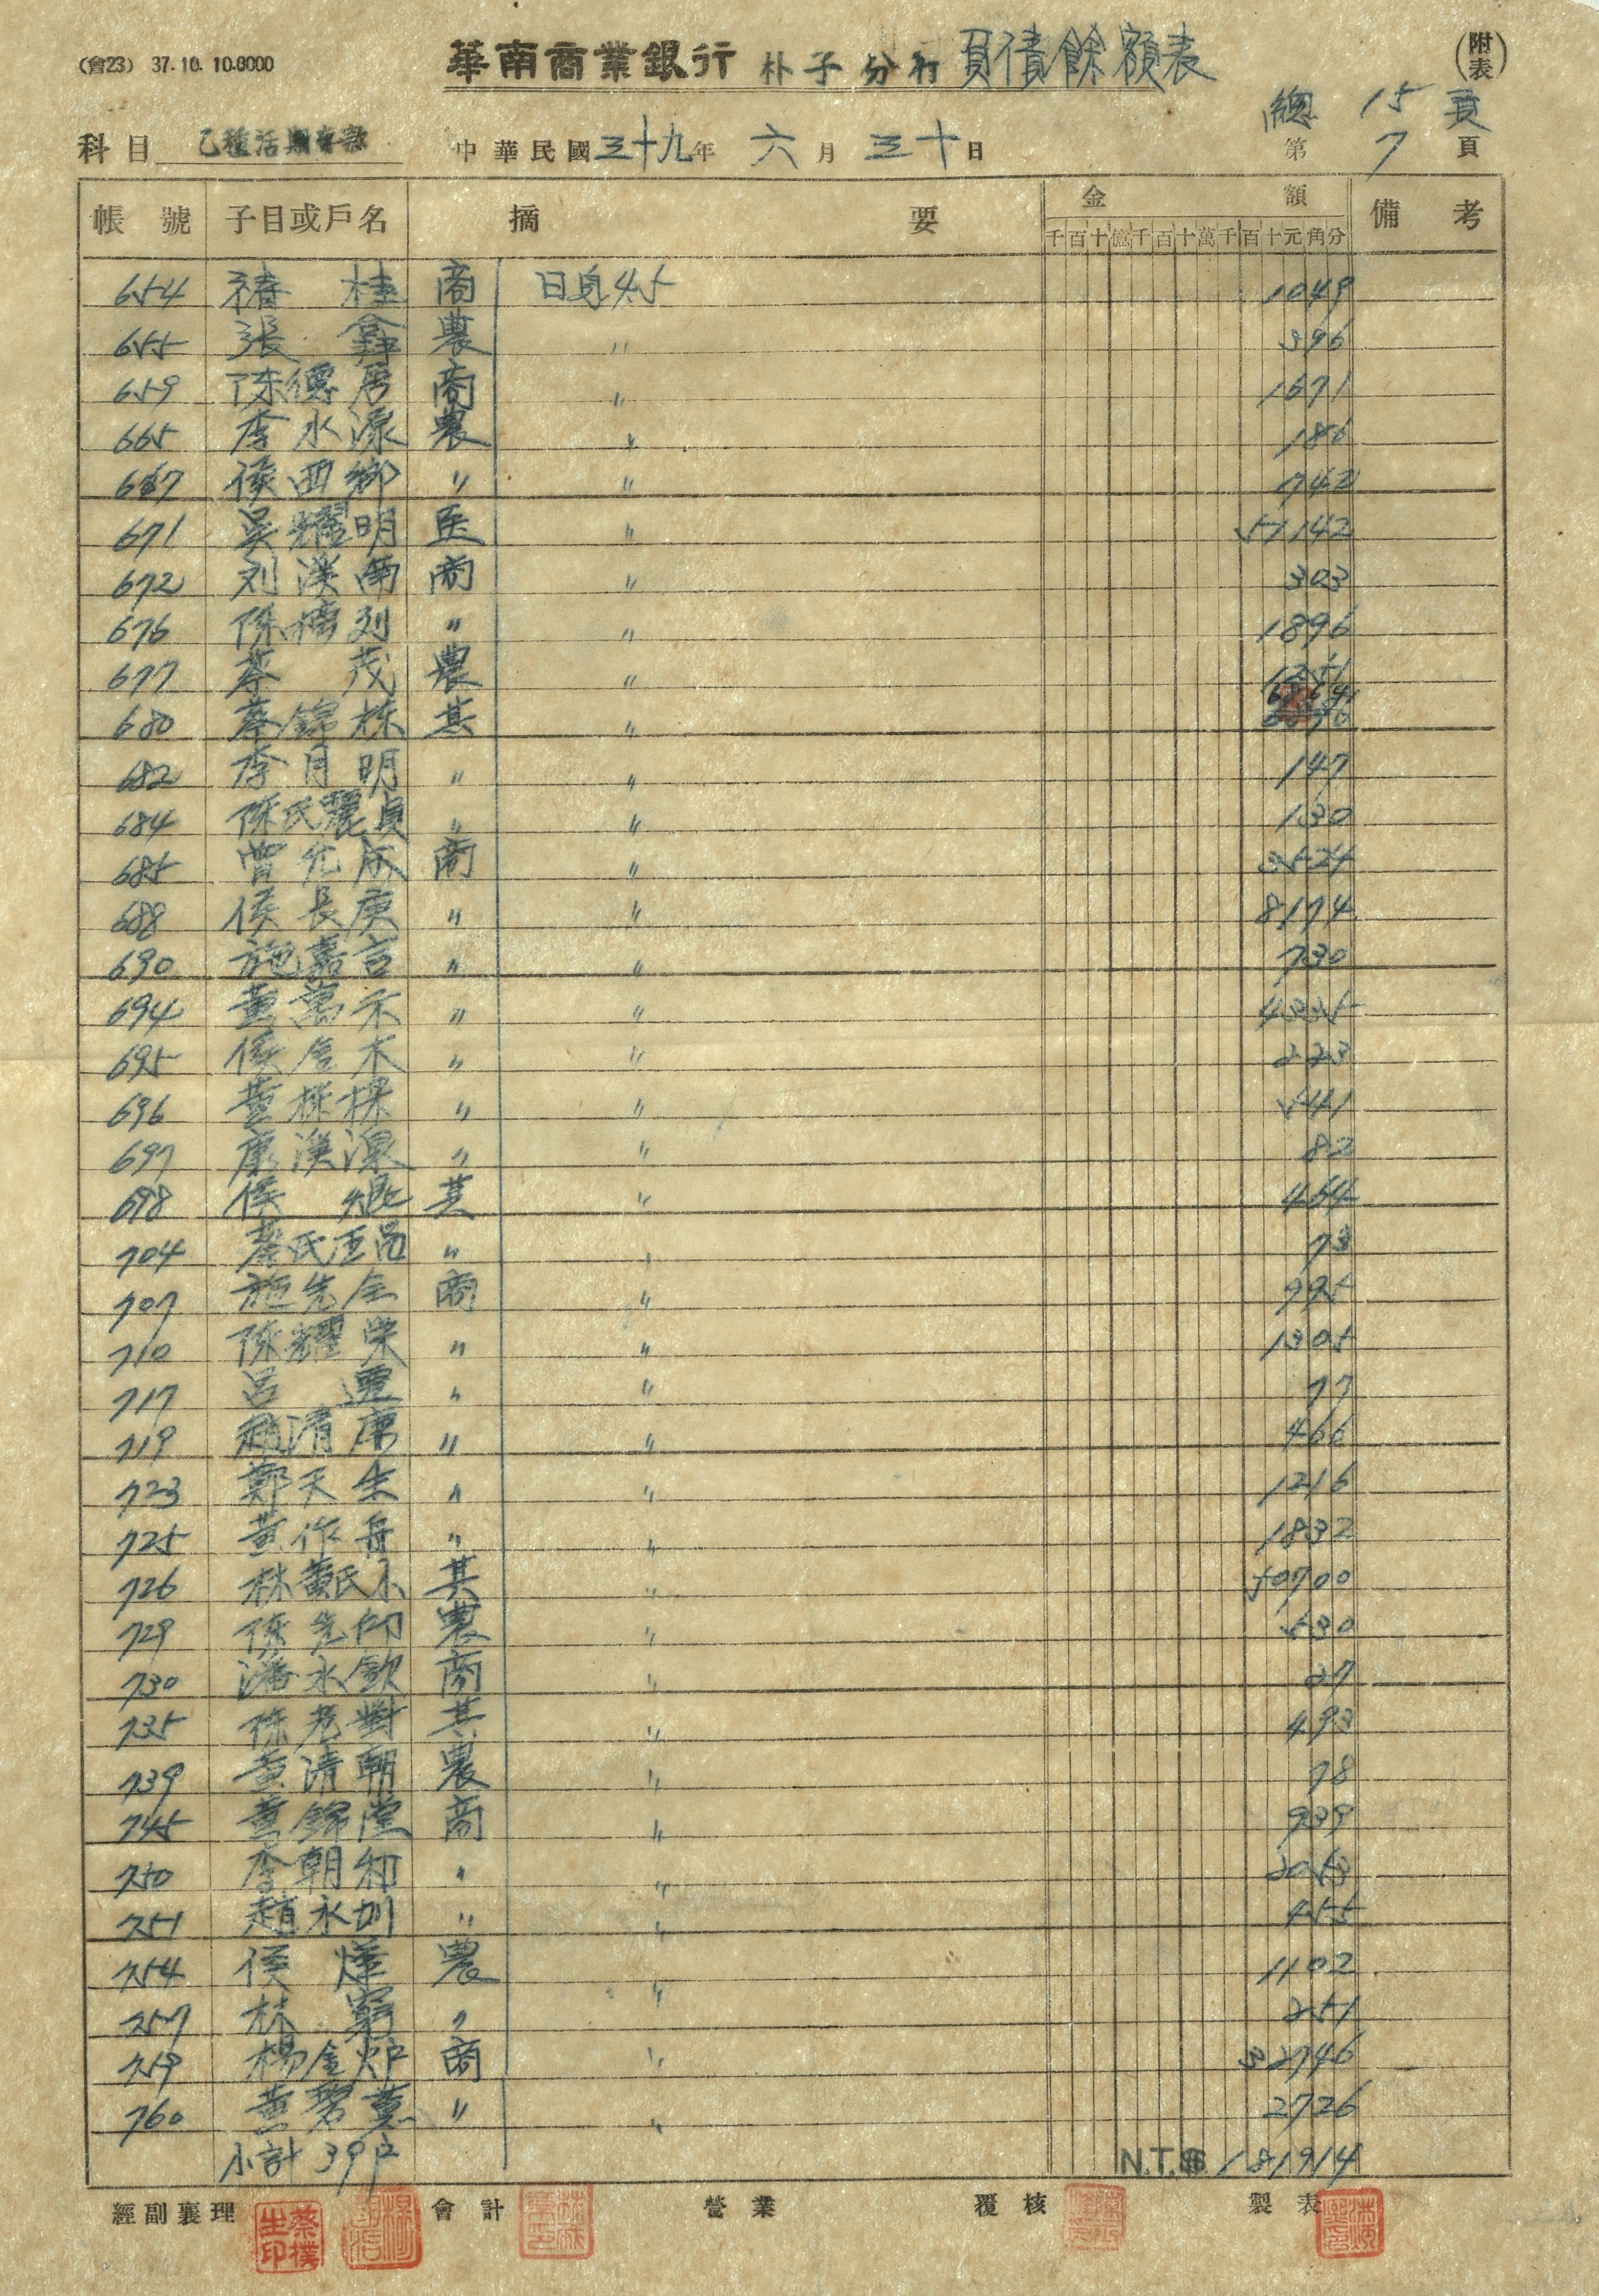 (會23) 37.10.10.0000
華南商業銀行 朴子分行 負債餘額表 (附表)
總 15 頁
科目 乙種活期存款 中華民國三十九年 六月 三十日 第 7 頁
帳號 子目或戶名 摘要 金額 備考
千百十億千百十萬千百十元角分
654 桂 商 日息4.5 1049
655 張 農 〃 396
659 陳德居 商 〃 1671
665 李水源 農 〃 186
667 侯西鄉 〃 〃 742
671 吳耀明 医 〃 57142
672 刘漢南 商 〃 303
676 陳 列 〃 〃 1896
677 蔡茂 農 〃 1251
680 蔡錦株 其 〃
682 李月明 〃 〃 147
684 陳氏麗貞 〃 〃 130
685 曾允成 商 〃 3524
688 侯長庚 〃 〃 8174
690 施嘉言 〃 〃 730
694 黃萬禾 〃 〃 4335
695 侯金木 〃 〃 223
696 黃株樑 〃 〃 541
697 康漢源 〃 〃 82
698 侯 其 〃 464
704 蔡氏 〃 〃 73
707 施先全 商 〃 995
710 陳耀榮 〃 〃 1305
717 呂 〃 〃 77
719 趙清康 〃 〃 466
723 鄭天生 〃 〃 1216
725 黃作舟 〃 〃 1832
726 林黃氏不 其 〃 50700
729 陳先印 農 〃 530
730 潘永欽 商 〃 27
735 陳老對 其 〃 493
739 黃清朝 農 〃 78
745 黃錦堂 商 〃 939
750 李朝和 〃 〃 2053
751 趙永圳 〃 〃 455
754 侯 農 〃 1102
757 林窮 〃 〃 251
759 楊金炉 商 〃 32746
760 黃碧 〃 〃 2726
小計 39戶 N.T.$ 181914
經副襄理 會計 營業 覆核 製表
蔡樸生印